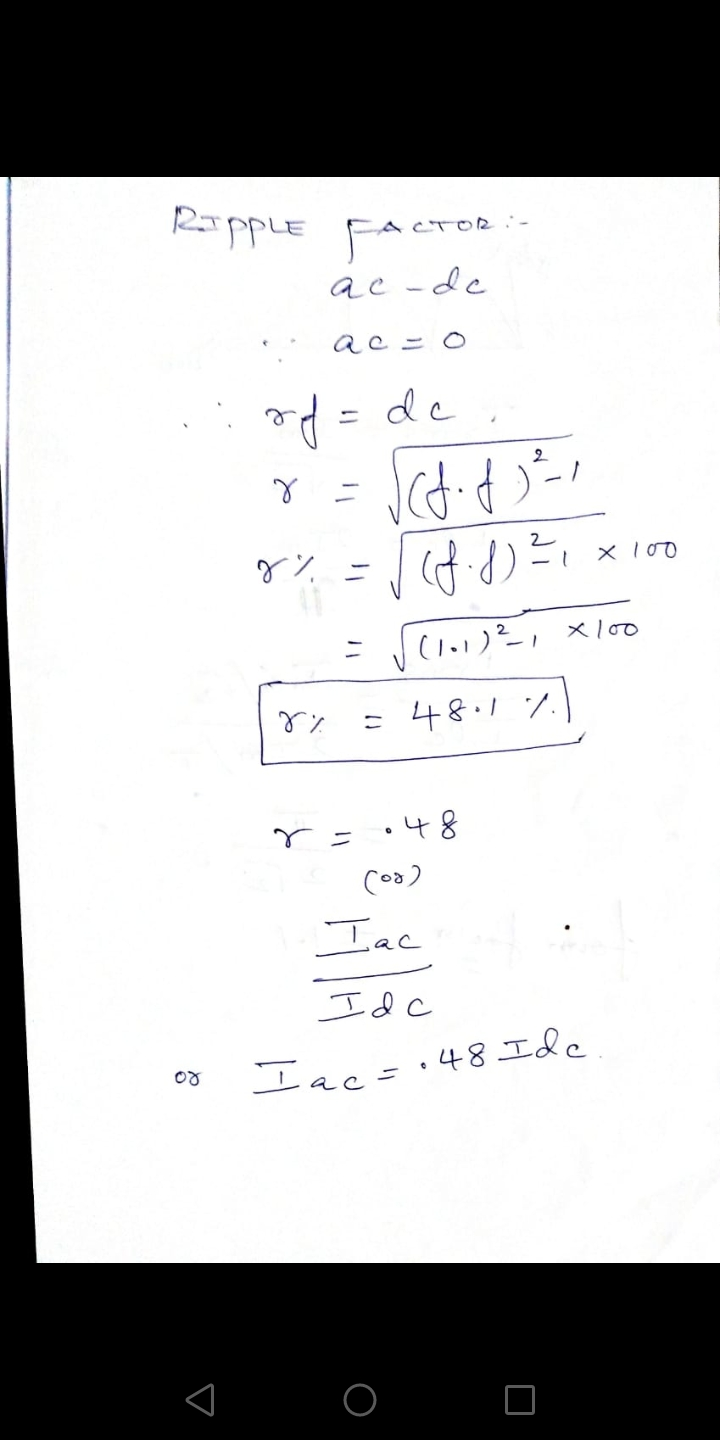 RIPPLE FACTOR :-
ac - dc
∵ ac = 0
∴ rf = dc.
r = √(f.f)²-1
r% = √(f.f)²-1 × 100
= √(1.1)²-1 × 100
r% = 48.1 %.
r = .48
(or)
Iac
Idc
or Iac = .48 Idc.